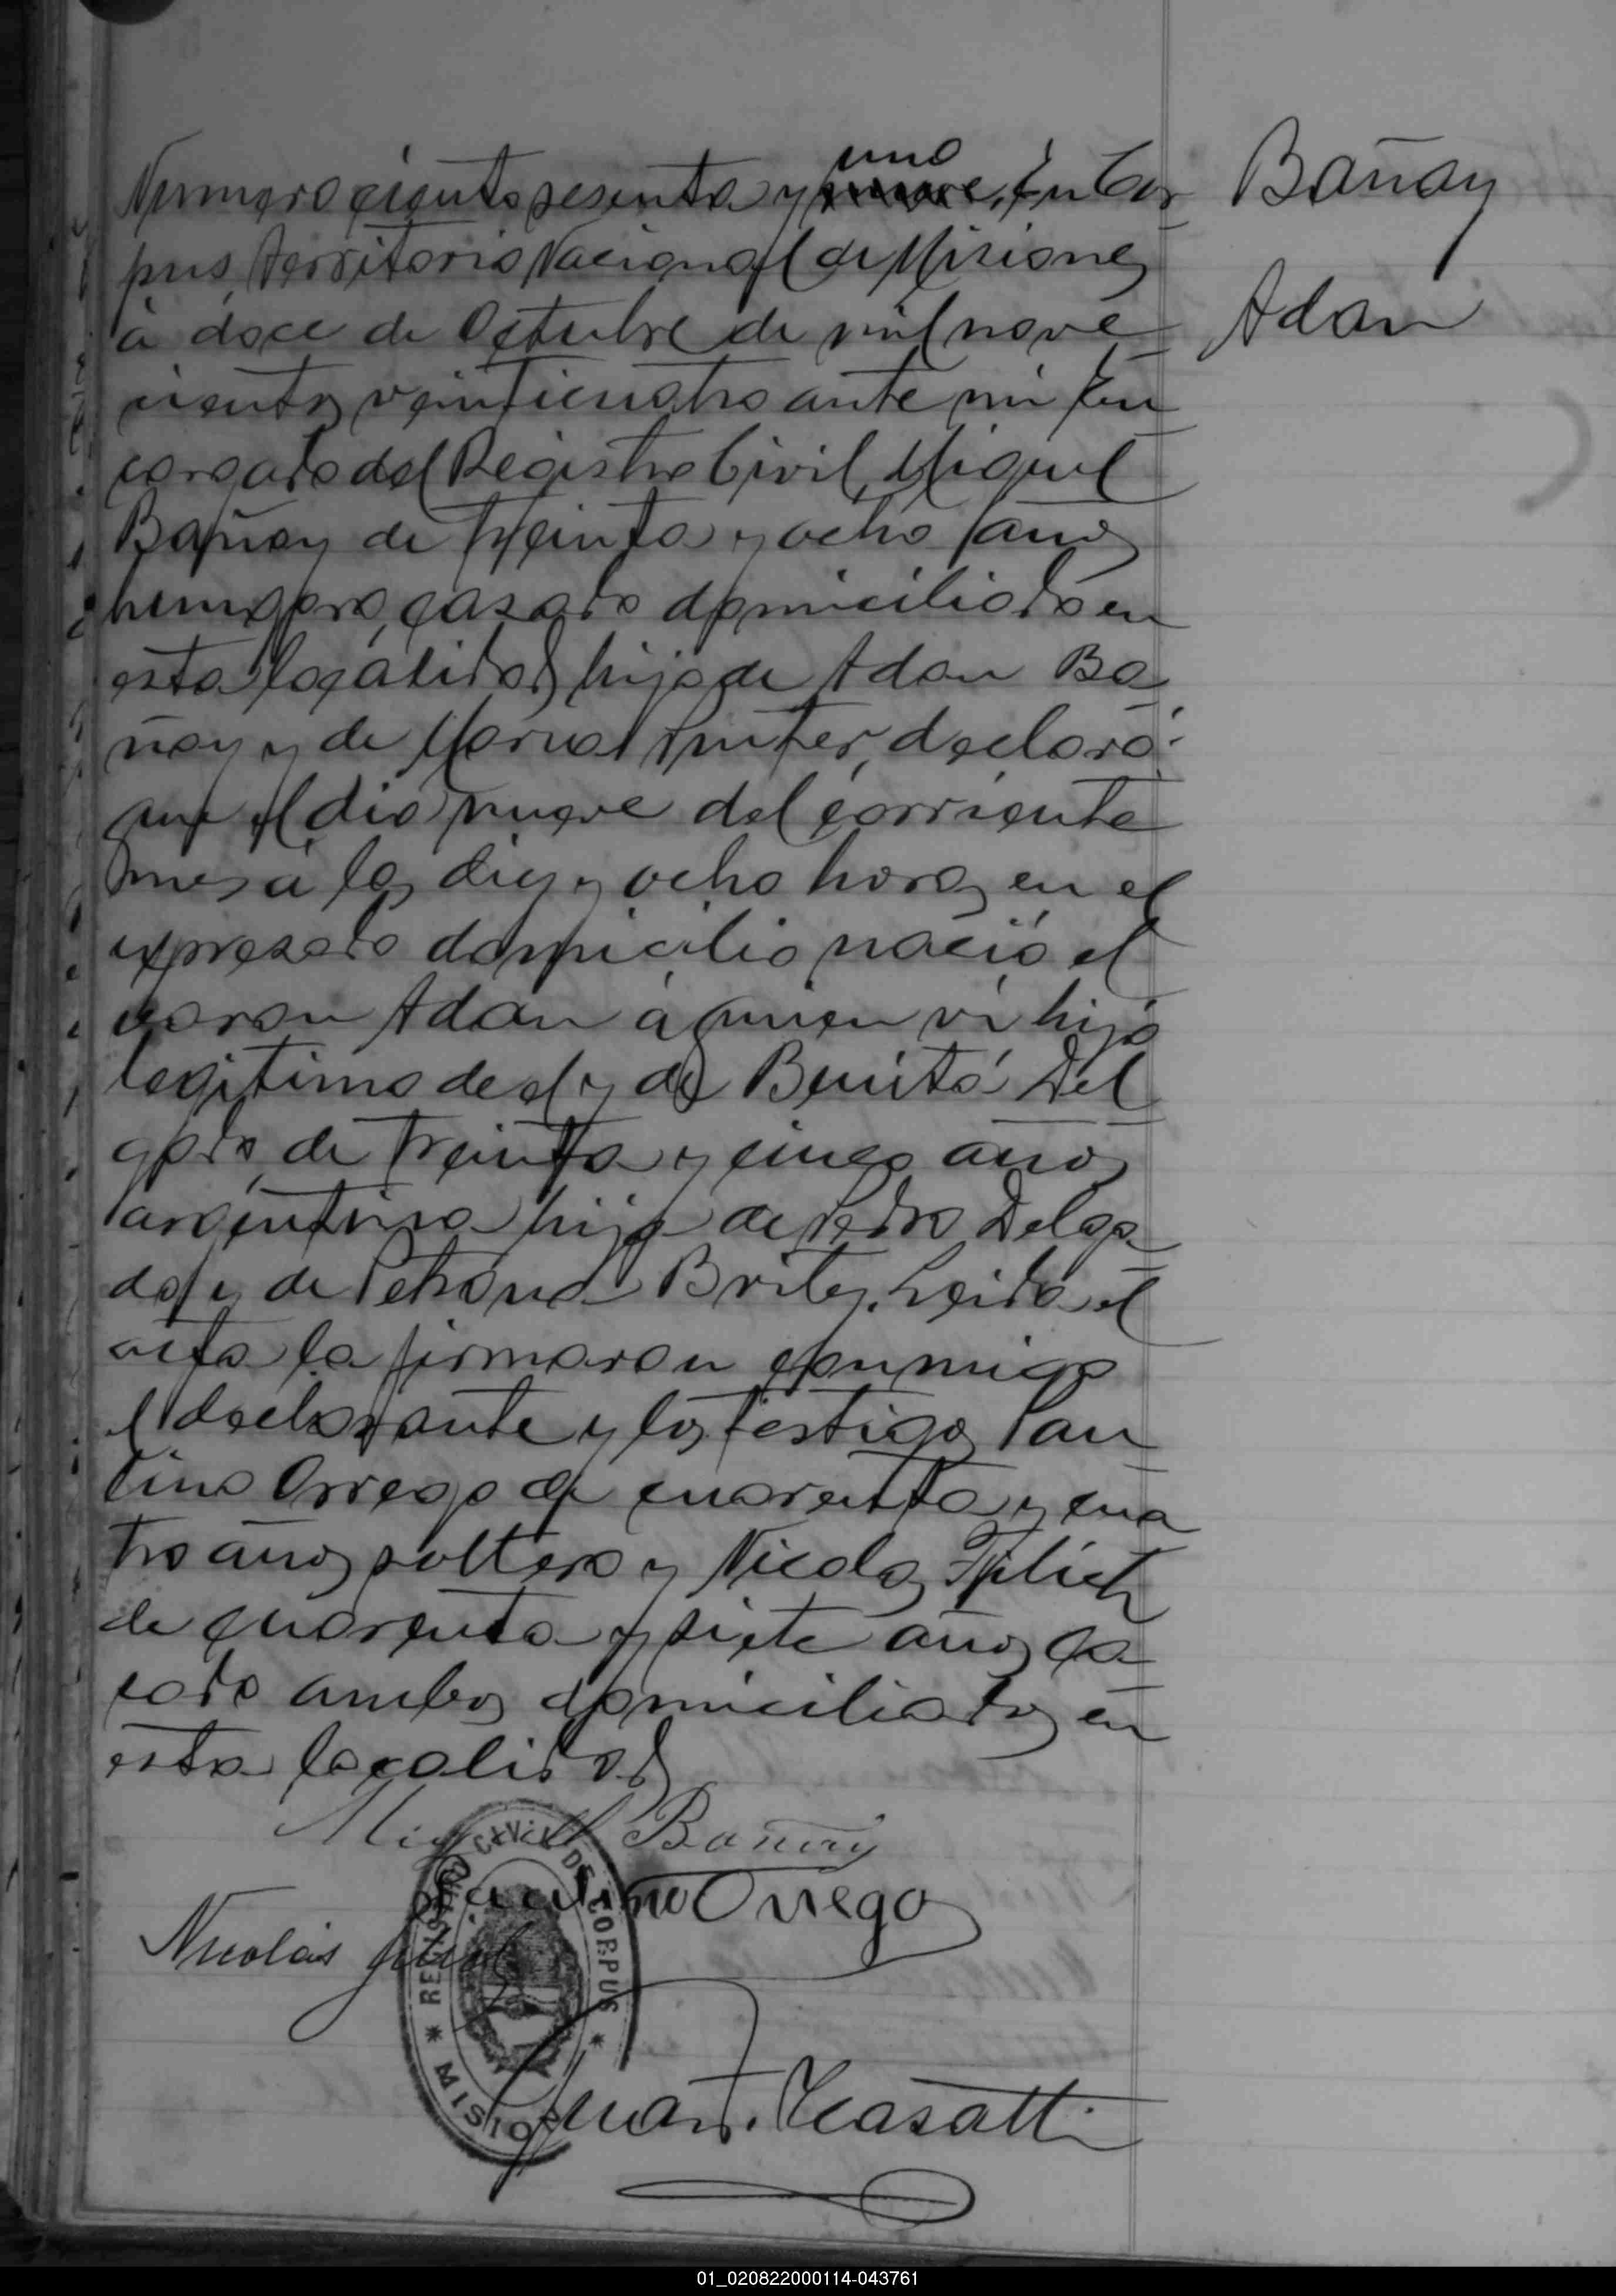 Numero ciento sesenta y nueve uno. En Cor
pus, Territorio Nacional de Misiones
á doce de Octubre de mil nove
cientos veinticuatro ante mi En
cargado del Registro Civil, Miguel
Bañay de treinta y ocho años
hungaro, casado domiciliado en
esta localidad, hijo de Adan Ba
ñay y de Maria Pinter, declaró:
que el dia nueve del corriente
mes á las diez y ocho horas en el
expresado domicilio nació el
varon Adan á quien vi hijo
legitimo de el y de Benita Del
gado, de treinta y cinco años
argentina hija de Pedro Delga
do y de Petrona Britez. Leida el
acta la firmaron conmigo
el declarante y los testigos Pau
lino Orrego de cuarenta y cua
tro años soltero y Nicolas
de cuarenta y siete años ca
sado ambos domiciliados en
esta localidad
Bañay
Adan
Miguel Bañay
Paulino Orrego
Nicolás
REGISTRO CIVIL DE CORPUS
* MISIONES *
Juan F. Casatti
01_020822000114-043761